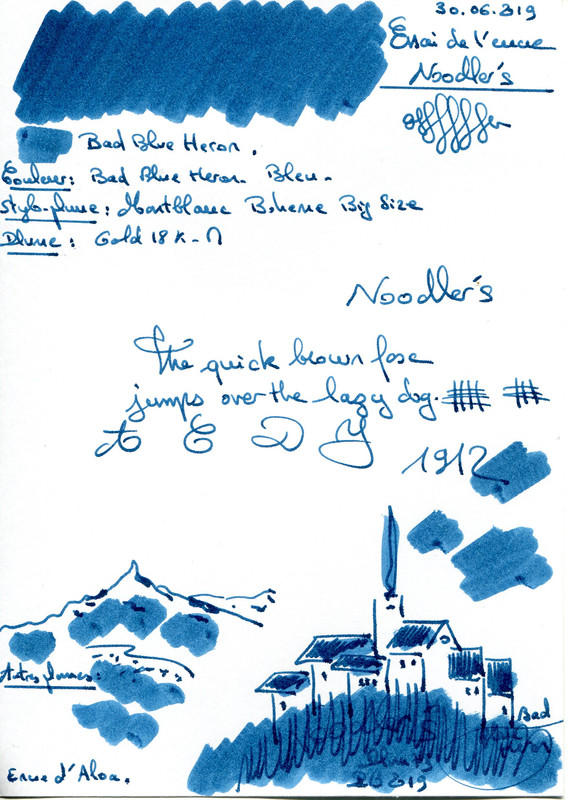 30.06.219
Essai de l'encre
Noodler's
Bad Blue Heron.
Couleur: Bad Blue Heron. Bleu.
Stylo-plume: Montblanc Boheme Big Size
Plume: Gold 18 K - M
Noodler's
The quick brown foxe
jumps over the lazy dog.
A E D Y
1912
Autres plumes:
Bad
2019
Encre d'Aloa.